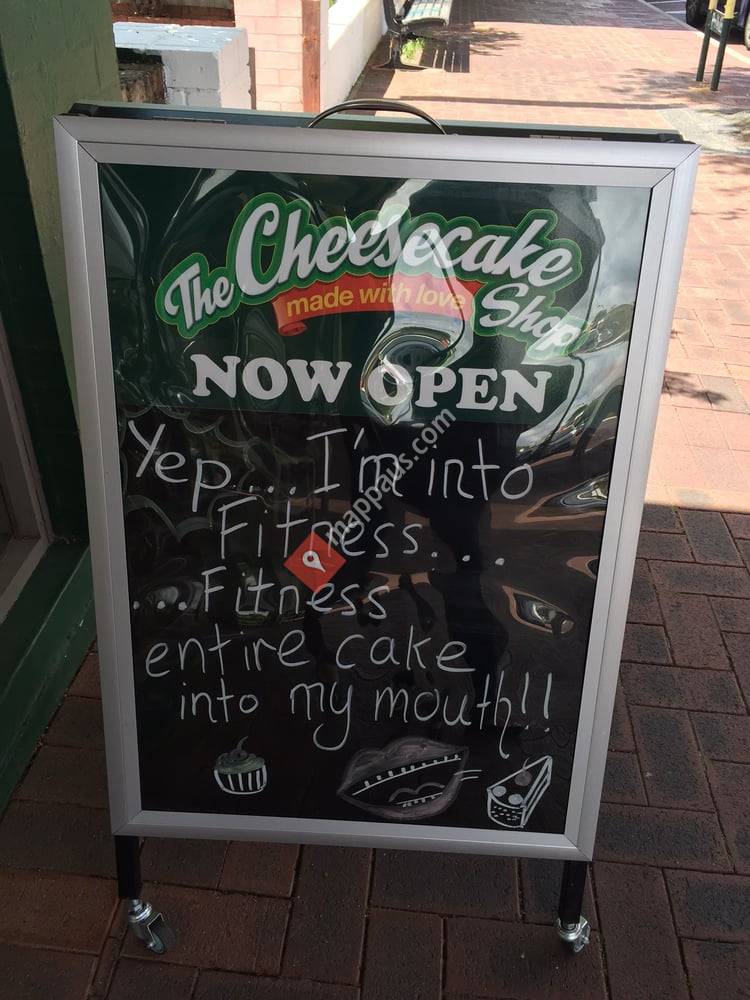 The Cheesecake Shop
made with love
NOW OPEN
Yep....I'm into
Fitness...
...Fitness
entire cake
into my mouth!!
mappaus.com